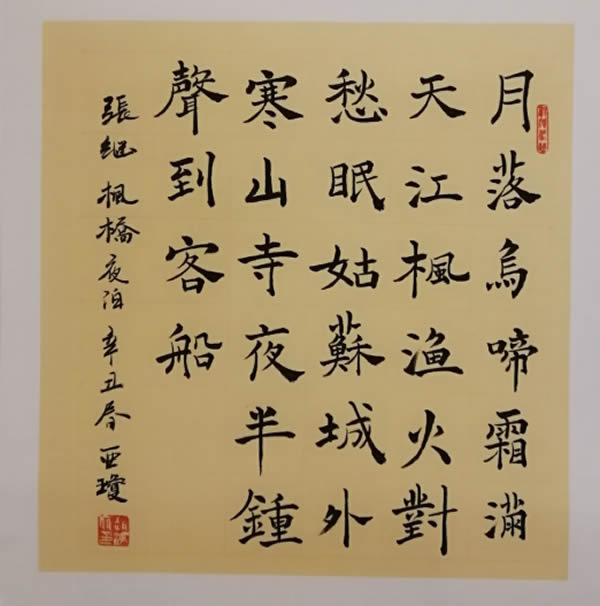 月落烏啼霜滿
天江楓渔火對
愁眠姑蘇城外
寒山寺夜半鍾
聲到客船
張继楓橋夜泊辛丑春亚瓊